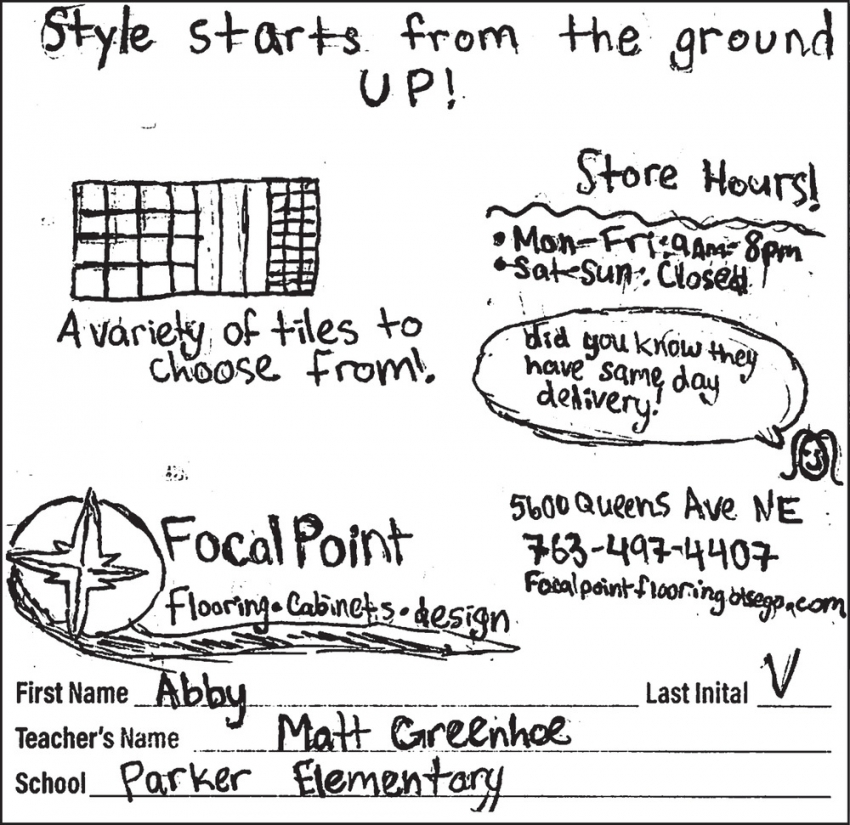 Style starts from the ground
UP!
Store Hours!
• Mon-Fri: 9AM-8pm
• Sat-Sun: Closed
A variety of tiles to
choose from!
did you know they
have same day
delivery!
Focal Point
Flooring • Cabinets • design
5600 Queens Ave NE
763-497-4407
Focalpointflooringotsego.com
First Name Abby Last Inital V
Teacher's Name Matt Greenhoe
School Parker Elementary